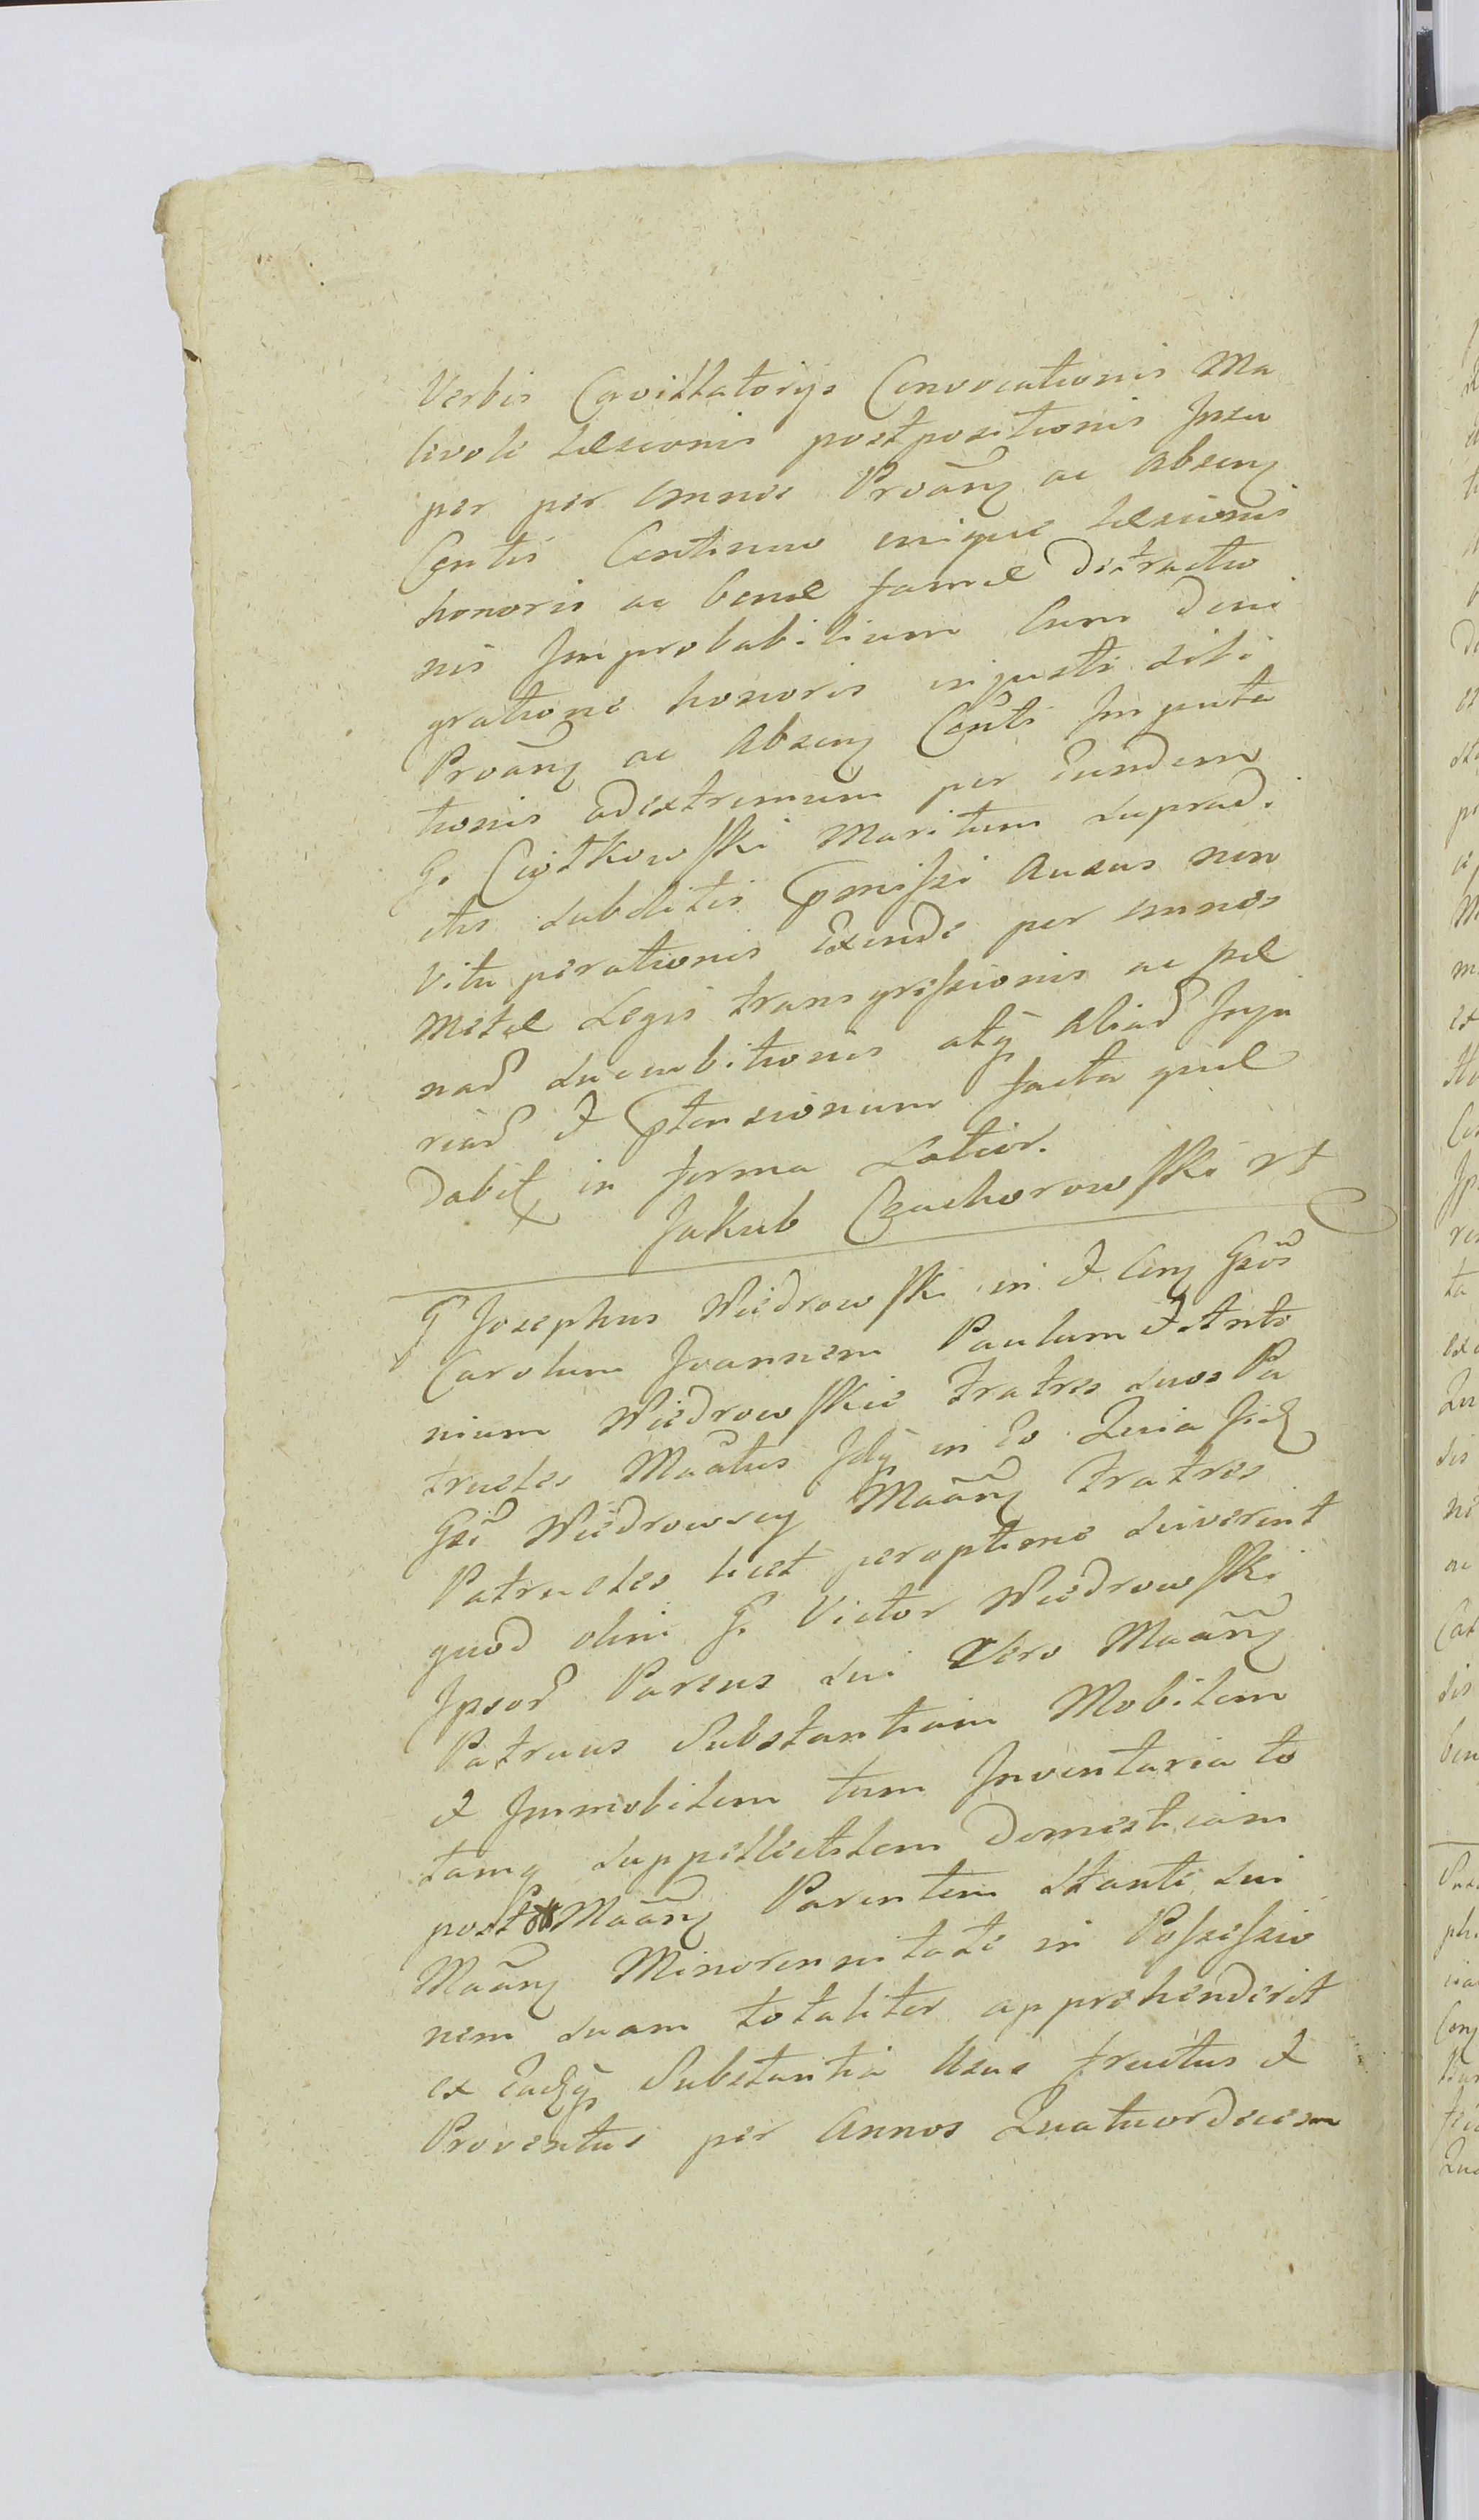 Verbis Cavillatorijs Convocationis Ma
livoli Læsionis postpositionis Insu
per per omnes Proãnz ac absenz
Centis Continuo inique Læsionis
honoris ac bonæ famæ Distractio
nis Improbabilium Cum deni
gratione honoris injusti sibi
Proãnz ac Absenz Centi Imputa
tionis adextremum per Eundem
G. Ciołkowski Maritum suprad.
ctis subditis pmissi Ausus non
Vituperationis Exinde per omnes
Metæ Legis transgressionis ac pæ
nar Sucubitionis atq aliar Inju
riar & ptensionum facta quæ
Dabit in forma Latior.
Jakub Czachorowski
G Josephus Wiedrowski in & Cenz Gsos
Carolum Joannem Paulum & Anto
nium Wiedrowskie Fratres suos Pa
trueles Maãtus Idq in Eo Quia Iidz
Gsi Wiedrowscy Maãnz Fratres
Patrueles licet peroptime sciverint
quod olim G. Victor Wiedrowski
Ipsor Parens sui Vero Maãnz
Patruus Substantiam Mobilem
& Immobilem tum Inventaria to
tamq suppellectilem Domesticam
post Maãnz Parentem stante sui
Maãnz Minorennitate in Possessio
nem suam totaliter apprehenderit
ex Eadzq Substantia Usus fructus &
Proventus per Annos Quatuordecem